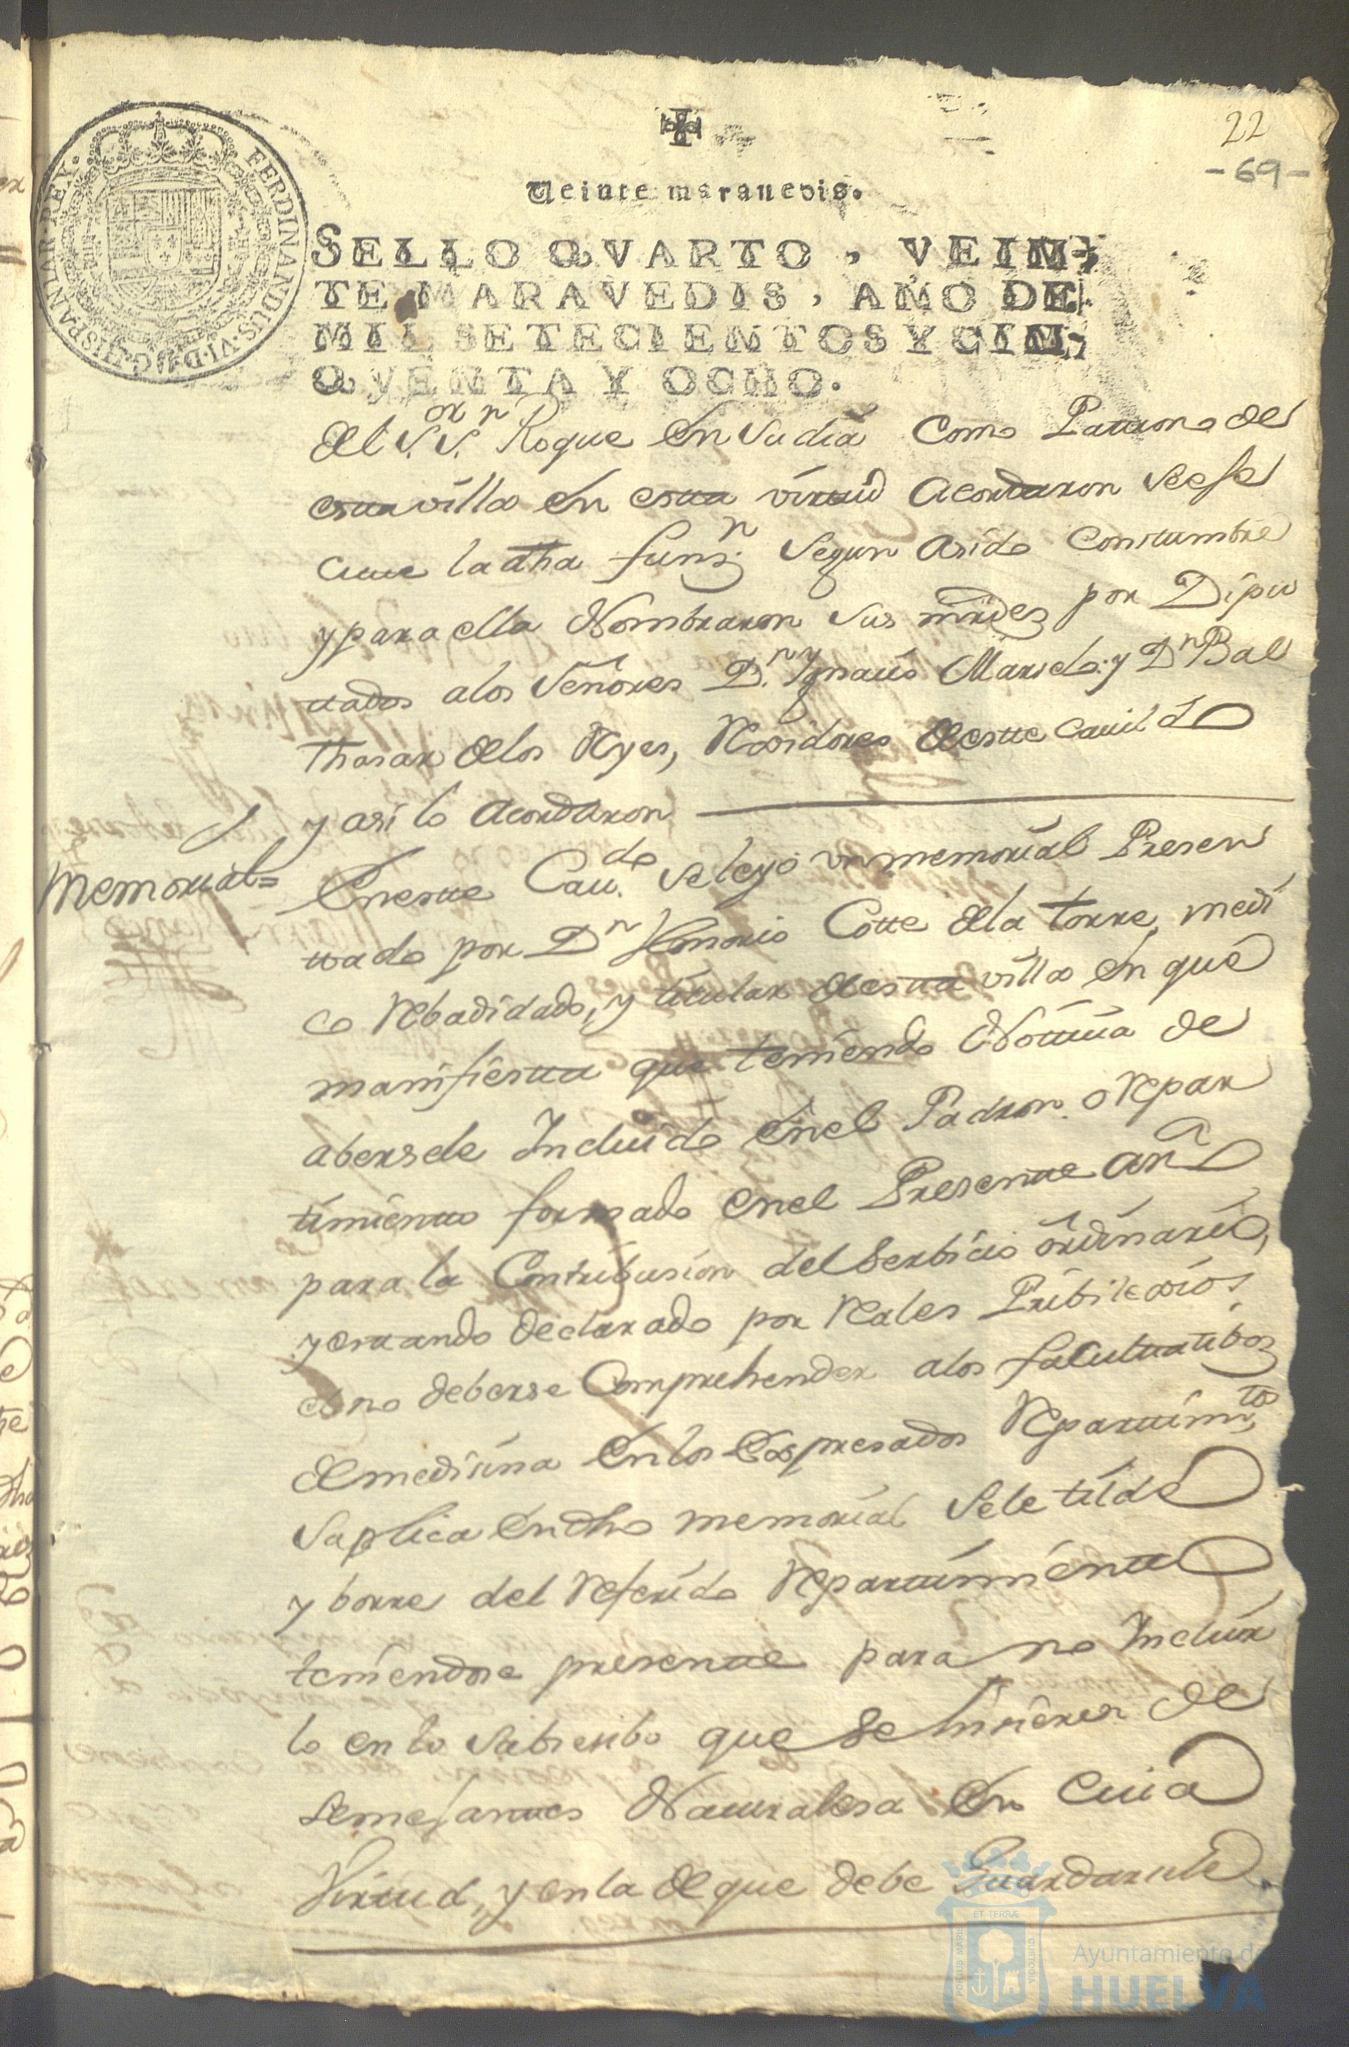 22
-69-
HISPANIAR·REX· FERDINANDUS·VI·D·G·
Veinte marauedis.
SELLO QVARTO, VEIN-
TE MARAVEDIS, AÑO DE
MIL SETECIENTOS Y CIN-
QVENTA Y OCHO.
del S.or S.n Roque en su dia Como Patrono de
esta villa en esta virtud Acordaron se efe
ctue la dha funz.n segun asido Constumbre
y para ella Nombraron sus mrdes por Dipu
tados a los Señores D.n Ygnaçio Marselo y D.n Bal
thasar de los Reyes, Rexidores de este Cavildo
y asi lo Acordaron
Memorial=
En este Cau.do se leyo un memorial Presen
tado por D.n Cotte de la torre, medi
co Rebadidado, y titular de esta villa en que
manifiesta que teniendo Notiçia de
aberse le Incluido en el Padron o Repar
timiento formado en el Presente año
para la Contribusion del Serbiçio ordinario,
y estando declarado por Reales Pribilexios
el no deberse Comprehender a los facultatibos
de medisina en los Expresados Repartim.tos
Suplica en dho memorial se le tilde
y borre del Referido Repartimiento
teniendose presente para no Incluir
lo en lo subsesibo que se hisieren de
semejantes Naturalesa En Cuia
Virtud, y en la de que debe Guardarsele
PORTUS MARIS ET TERRÆ CUSTODIA
Ayuntamiento de
HUELVA